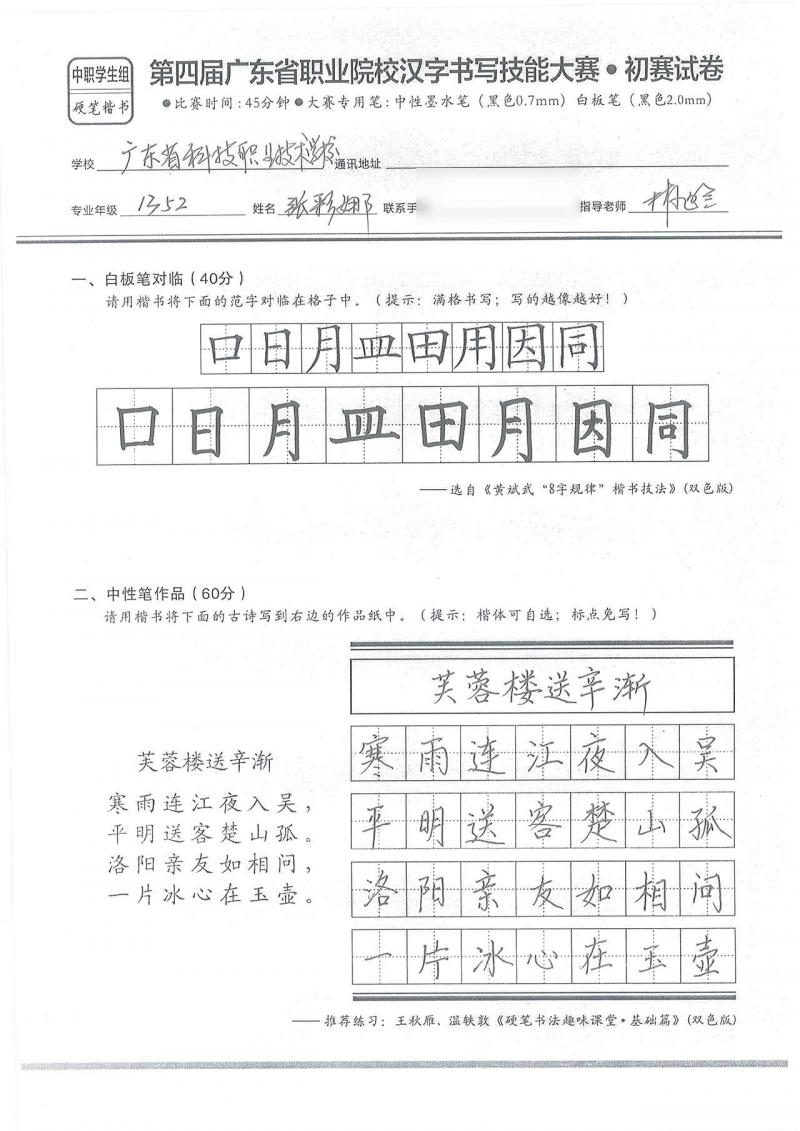 中职学生组
硬笔楷书
第四届广东省职业院校汉字书写技能大赛•初赛试卷
●比赛时间:45分钟●大赛专用笔:中性墨水笔(黑色0.7mm)白板笔(黑色2.0mm)
学校 广东省科技职业技术学校 通讯地址
专业年级 1352 姓名 张彩娜 联系手 指导老师 林
一、白板笔对临(40分)
请用楷书将下面的范字对临在格子中。(提示:满格书写;写的越像越好!)
口日月皿田用因同
口日月皿田月因同
——选自《黄斌武“8字规律”楷书技法》(双色版)
二、中性笔作品(60分)
请用楷书将下面的古诗写到右边的作品纸中。(提示:楷体可自选;标点免写!)
芙蓉楼送辛渐
寒雨连江夜入吴,
平明送客楚山孤。
洛阳亲友如相问,
一片冰心在玉壶。
芙蓉楼送辛渐
寒雨连江夜入吴
平明送客楚山孤
洛阳亲友如相问
一片冰心在玉壶
——推荐练习:王秋雁、温轶敦《硬笔书法趣味课堂·基础篇》(双色版)